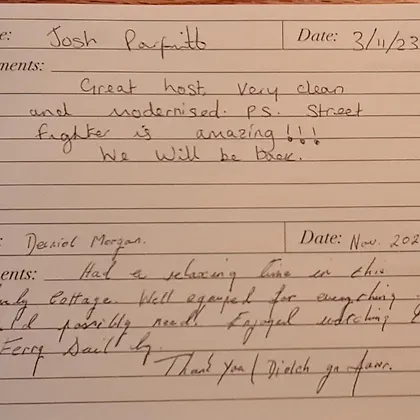 e: Josh Parfitt Date: 3/11/23
ments:
Great host, very clean
and modernised. P.S. Street
fighter is amazing!!!
We will be back.
: Deiniol Morgan. Date: Nov. 202
ents: Had a relaxing time in this
ly Cottage. Well equiped for everything
ld possibly need. Enjoyed watching
Ferry Sail by.
Thank You / Diolch yn fawr.